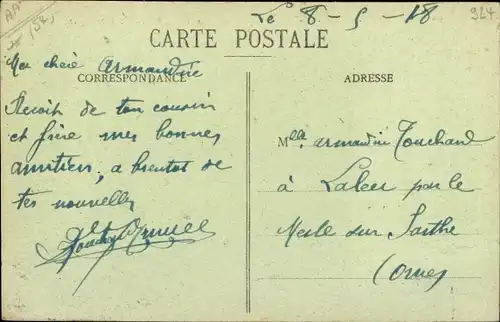 Le 8-5-18
924
CARTE POSTALE
Ma chère Armandine
CORRESPONDANCE
ADRESSE
Reçoit de ton cousin
et frère mes bonnes
amitiers, a bientot de
tes nouvelles
Mlle armandine Touchard
à Laleu par le
Mesle sur Sarthe
(Orne)